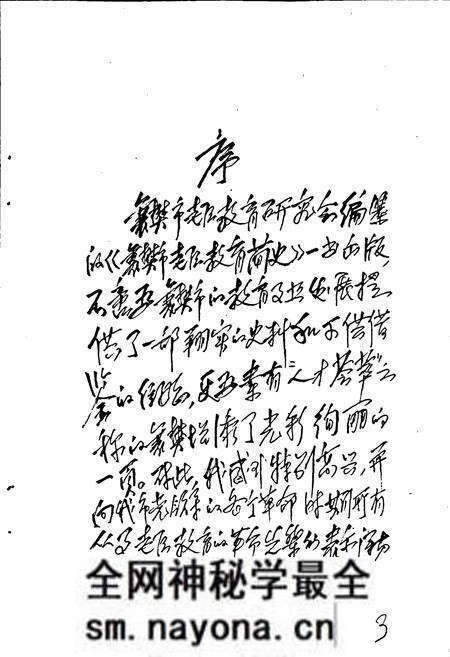 序
襄樊市老区教育研究会编纂
的《襄樊市老区教育简史》一书出版,
不但为襄樊市的教育事业发展提
供了一部翔实的史料和可供借
鉴的经验,更为素有"人才荟萃"之
称的襄樊增添了光彩绚丽的
一页。对此,我感到特别高兴,并
向我市老区的各个革命时期所有
从事老区教育的革命先辈
全网神秘学最全
sm.nayona.cn
3